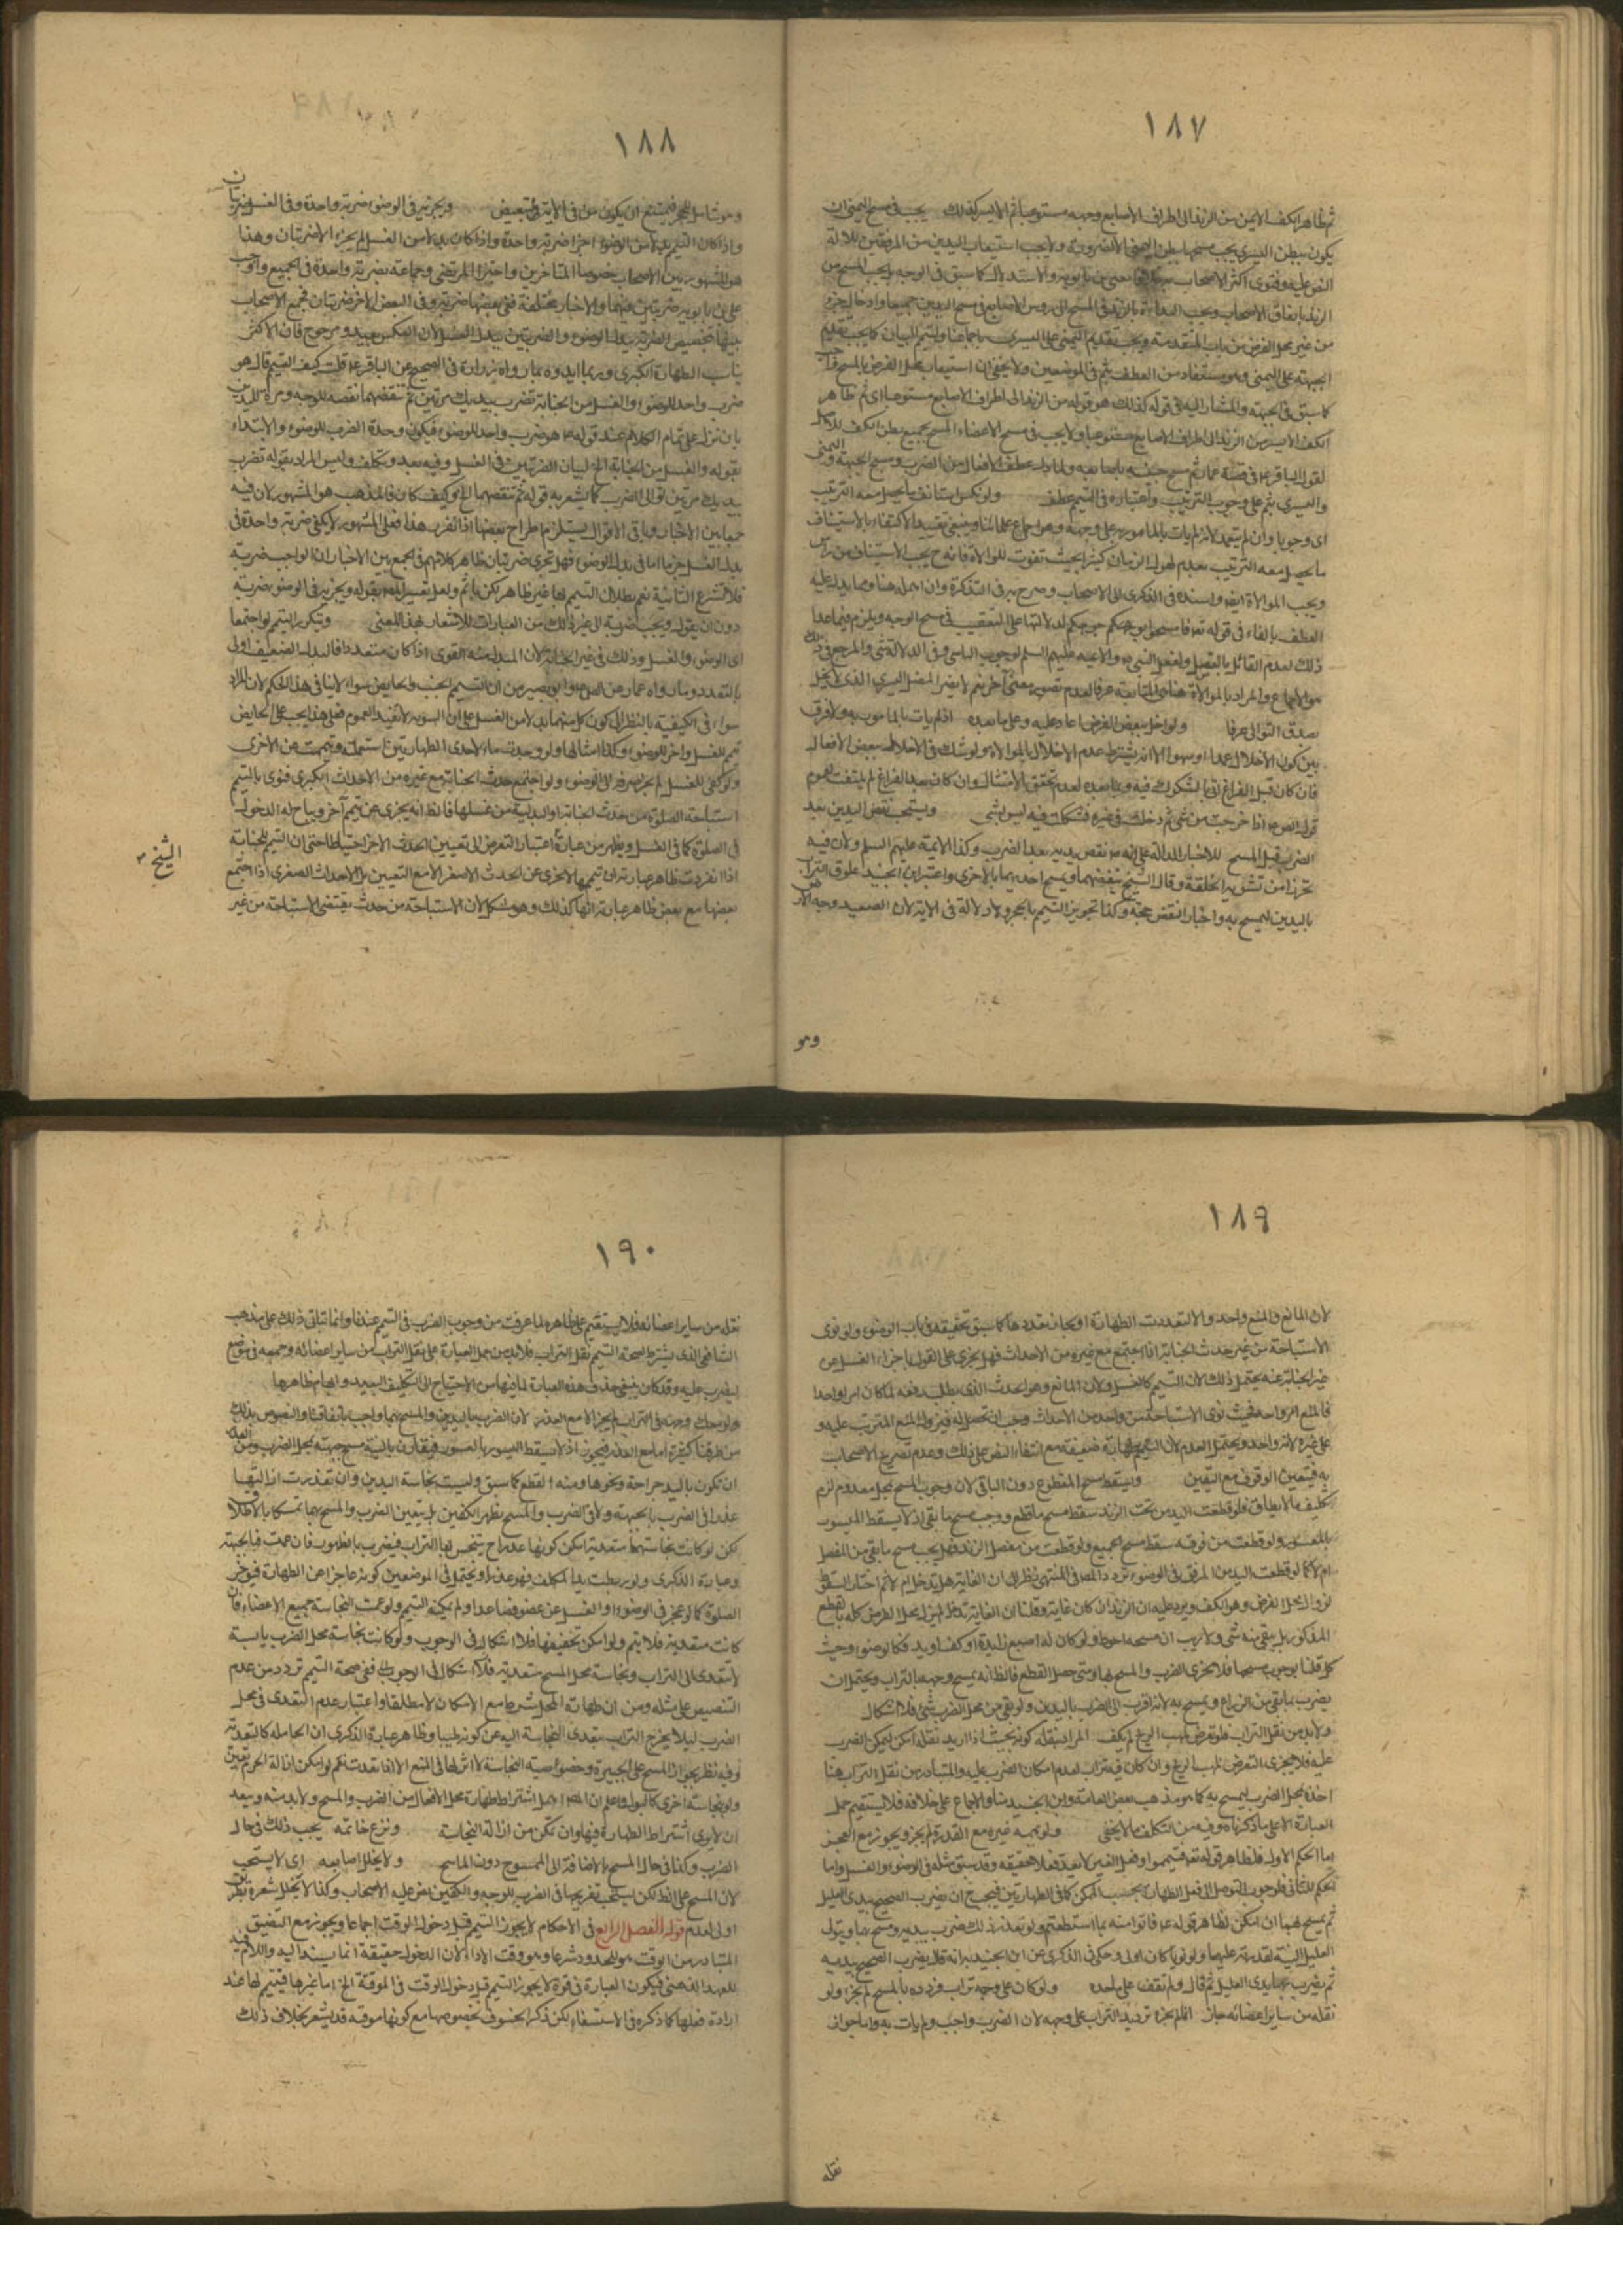 ١٨٧
ثم ظاهر الكف الايمن من الزند الى اطراف الاصابع وجهه مستوعبا ثم الايسر كذلك يجب في مسح اليمنى ان
يكون ببطن اليسرى يجب مسحها ببطن اليمنى الا لضرورة ولا يجب استيعاب اليدين من المرفقين لدلالة
النص عليه وفتوى اكثر الاصحاب كما سبق في الوجه يجب المسح من
الزند باتفاق الاصحاب ويجب البداءة بالزند في المسح الى رؤس الاصابع في مسح اليدين جميعا وادخال جزء
من غير محل الفرض من باب المقدمة ويجب تقديم اليمنى على اليسرى باجماعنا وليتم البيان كما يجب تقديم
الجبهة على اليمنى وهو مستفاد من العطف بثم في الموضعين ولا يخفى ان استيعاب محل الفرض بالمسح واجب
كما سبق في الجبهة والمشار اليه في قوله كذلك هو قوله من الزند الى اطراف الاصابع مستوعبا اي ثم ظاهر
الكف الايسر من الزند الى اطراف الاصابع مستوعبا ولا يجب في مسح الاعضاء المسح بجميع بطن الكف للاصل
لقول الباقر ع في قصة عمار ثم مسح جبينه باصابعه
واليسرى بثم على وجوب الترتيب واعتباره في التيمم عطف ولو نكس استانف ما يحصل معه الترتيب
اي وجوبا وان لم يتعمد لانه لم يات بالمامور به على وجهه وهو اجماع علمائنا وينبغي تقييد الاكتفاء بالاستيناف
ما يحصل معه الترتيب بعدم طول الزمان كثيرا بحيث تفوت الموالاة فانه ح يجب الاستيناف من راس
ويجب الموالاة ايضا واسنده في الذكرى الى الاصحاب وصرح به في التذكرة وان اهمله هنا ومما يدل عليه
العطف بالفاء في قوله تعالى فامسحوا بوجوهكم لدلالتها على التعقيب في مسح الوجه ويلزم فيما عدا
ذلك لعدم القائل بالفصل
هو الاجماع والمراد بالموالاة هنا هي المتابعة عرفا لعدم تصور معنى آخر نعم لا يضر الفصل اليسير الذي لا يخل
بصدق التوالي عرفا ولو اخل ببعض الفرض اعاد عليه وعلى ما بعده اذ لم يات بالمامور به ولا فرق
بين كون الاخلال عمدا او سهوا الا انه يشترط عدم الاخلال بالموالاة ولو شك في الاخلال ببعض الافعال
فان كان قبل الفراغ اتى بالمشكوك فيه وبما بعده لعدم تحقق الامتثال وان كان بعد الفراغ لم يلتفت لعموم
قول الص ع اذا خرجت من شئ ثم دخلت في غيره فشكك فيه ليس بشئ ويستحب نفض اليدين بعد
الضرب قبل المسح للاخبار الدالة على انه ص نفض يديه بعد الضرب وكذا الائمة عليهم السلم ولان فيه
تحرزا من تشويه الخلقة وقال الشيخ ينفضهما ويمسح احديهما بالاخرى واعتبر ابن الجنيد علوق التراب
باليدين ليمسح به واخبار النفض حجة وكذا تجويز التيمم بالحجر ولا دلالة في الاية لان الصعيد وجه الارض
وهو
١٨٨
وهو شامل للحجر فيمتنع ان يكون من في الاية للتبعيض ويجزئه في الوضوء ضربة واحدة وفي الغسل ضربتان
واذا كان التيمم بدلا من الوضوء اجزا ضربة واحدة واذا كان بدلا من الغسل لم يجزء الا ضربتان وهذا
هو المشهور بين الاصحاب خصوصا المتاخرين واختار المرتضى وجماعة ضربة واحدة في الجميع واوجب
علي بن بابويه ضربتين فيهما والاخبار مختلفة ففي بعضها ضربة وفي البعض الاخر ضربتان فجمع الاصحاب
بينها بتخصيص الضربة ببدل الوضوء والضربتين ببدل الغسل لان العكس بعيد ومرجوح فان الاكثر
يناسب الطهارة الكبرى وربما ايدوه بما رواه زرارة في الصحيح عن الباقر ع قلت كيف التيمم قال هو
ضرب واحد للوضوء والغسل من الجنابة تضرب بيديك مرتين ثم تنفضهما نفضة للوجه ومرة لليدين
بان نزل على تمام الكلام عند قوله ع هو ضرب واحد للوضوء فيكون وحدة الضرب للوضوء والابتداء
بقوله والغسل من الجنابة الخ لبيان الضربتين في الغسل وفيه بعد وتكلف وليس المراد بقوله تضرب
بيديك مرتين توالي الضرب كما يشعر به قوله ثم تنفضهما الخ وكيف كان فالمذهب هو المشهور لان فيه
جمعا بين الاخبار وباقي الاقوال يستلزم اطراح بعضها اذا تقرر هذا فعلى المشهور لا يكفي ضربة واحدة في
بدل الغسل جزما اما في بدل الوضوء فهل تجزي ضربتان ظاهر كلامهم في الجمع بين الاخبار ان الواجب ضربة
فلا تشرع الثانية نعم بطلان التيمم بها غير ظاهر لكن ياثم ولعل تعبير المص بقوله ويجزئه في الوضوء ضربة
دون ان يقول ويجب ضربة الى غير ذلك من العبارات للاشعار بهذا المعنى ويتكرر التيمم لو اجتمعا
اي الوضوء والغسل وذلك في غير الجنابة لان المبدل منه القوي اذا كان متعددا فالبدل الضعيف اولى
بالتعدد وما رواه عمار عن الص ع وابو بصير من ان التيمم للجنب والحايض سواء لا ينافي هذا الحكم لان المراد
سواء في الكيفية بالنظر الى كون كل منهما بدلا من الغسل على ان التسوية لا تفيد العموم فعلى هذا يجب على الحايض
تيمم للغسل واخر للوضوء وكذا امثالها ولو وجدت ماء لاحدى الطهارتين استعملته وتيممت عن الاخرى
ولو كفى للغسل لم يجز صرفه الى الوضوء ولو اجتمع حدث الجنابة مع غيره من الاحداث الكبرى فنوى بالتيمم
استباحة الصلوة من حدث الجنابة او البدلية من غسلها فالظ انه يجزي عن تيمم آخر ويباح له الدخول
في الصلوة كما في الغسل ويظهر من عبارة اعتبار التعرض الى تعيين الحدث الاخر احتياطا حتى ان التيمم للجنابة
الشيخ
اذا انفردت ظاهر عبارته ان تيممها لا يجزي عن الحدث الاصغر الا مع التعيين بل الاحداث الصغرى اذا اجتمع
بعضها مع بعض ظاهر عبارته انها كذلك وهو مشكل لان الاستباحة من حدث يقتضي الاستباحة من غير
١٨٩
لان المانع والمنع واحد والا لتعددت الطهارة او لجاز تعددها كما سبق تحقيقه في باب الوضوء ولو نوى
الاستباحة من غير حدث الجنابة اذا اجتمع مع غيره من الاحداث فهل يجزي على القول باجزاء الغسل عن
غير الجنابة عنه يحتمل ذلك لان التيمم كالغسل ولان المانع وهو الحدث الذي يطلب رفعه لما كان امرا واحدا
فالمنع امر واحد فحيث نوى الاستباحة من واحد من الاحداث وجب ان تحصل له فيزول المنع المترتب عليه و
على غيره لانه واحد ويحتمل العدم لان التيمم طهارة ضعيفة مع انتفاء النص على ذلك وعدم تصريح الاصحاب
به فيتعين الوقوف مع اليقين ويسقط مسح المقطوع دون الباقي لان وجوب المسح بمحل معدوم لزم
تكليف ما لا يطاق فلو قطعت اليد من تحت الزند سقط مسح ما قطع ووجب مسح ما بقي اذ لا يسقط الميسور
بالمعسور ولو قطعت من فوقه سقط مسح الجميع ولو قطعت من مفصل الزند فهل يجب مسح ما بقي من المفصل
ام لا كما لو قطعت اليد من المرفق في الوضوء تردد المص في المنتهى نظرا الى ان الغاية هل تدخل ام لا ثم اختار السقوط
لزوال محل الفرض وهو الكف ويرد عليه ان الزند ان كان غاية وقلنا ان الغاية تدخل لم يزل محل الفرض كله بالقطع
المذكور بل بقي منه شئ ولا ريب ان مسحه احوط ولو كان له اصبع زايدة او كف او يد فكالوضوء وحيث
كل قلنا بوجوب مسحها فلا يجزي الضرب والمسح بها ومتى حصل القطع فالظ انه يمسح وجهه بالتراب ويحتمل ان
يضرب بما بقي من الذراع ويمسح به لانه اقرب الى الضرب باليدين ولو بقي من محل الضرب شئ فلا اشكال
ولا بد من نقل التراب فلو تعرض لمهب الريح لم يكف المراد بنقله كونه بحيث اذا اريد نقله امكن ليمكن الضرب
عليه فلا يجزي التعرض لمهب الريح وان كان فيه تراب لعدم امكان الضرب عليه والمتبادر من نقل التراب هنا
اخذه بمحل الضرب ليمسح به كما هو مذهب بعض العامة وابن الجنيد منا والاجماع على خلافه فلا يستقيم حمل
العبارة الا على ما ذكرناه وفيه من التكلف ما لا يخفى ولو يممه غيره مع القدرة لم يجز ويجوز مع العجز
اما الحكم الاول فلظاهر قوله تعالى فتيمموا وفعل الغير لا يعد فعلا حقيقة وقد سبق مثله في الوضوء والغسل واما
الحكم الثاني فلوجوب التوصل الى فعل الطهارة بحسب الممكن كما في الطهارتين فيجب ح ان يضرب الصحيح بيدي العليل
ثم يمسح بهما ان امكن لظاهر قوله ع فاتوا منه بما استطعتم ولو تعذر ذلك ضرب بيديه ومسح بهما ويتولى
العليل النية لقدرته عليها ولو نويا كان اولى وحكى في الذكرى عن ابن الجنيد انه قال يضرب الصحيح بيديه
ثم يضرب بهما يدي العليل ثم قال ولم نقف على ماخذه ولو كان على وجهه تراب فردده بالمسح لم يجز ولو
نقله من ساير اعضائه جاز انما لم يجزه ترديد التراب على وجهه لان الضرب واجب ولم يات به واما جواز
نقله
١٩٠
نقله من ساير اعضائه فلا يستقيم على ظاهره لما عرفت من وجوب الضرب في التيمم عندنا وانما يتاتى ذلك على مذهب
الشافعي الذي يشترط لصحة التيمم نقل التراب فلا بد من حمل العبارة على نقل التراب من ساير اعضائه وجمعه في موضع
ليضرب عليه وقد كان ينبغي حذف هذه العبارة لما فيها من الاحتياج الى التكليف البعيد وايهام ظاهرها
ولو معك وجهه في التراب لم يجز الا مع العذر لان الضرب باليدين والمسح بهما واجب باتفاقنا والنصوص بذلك
من طرقنا كثيرة اما مع العذر فيجوز اذ لا يسقط الميسور بالمعسور فيقارن بالنية مسح جبهته بمحل الضرب ومن العذر
ان تكون باليد جراحة ونحوها ومنه القطع كما سبق وليست نجاسة اليدين وان تعذرت ازالتها
عذرا في الضرب بالجبهة ولا في الضرب والمسح بظهر الكفين بل يتعين الضرب والمسح بهما تمسكا بالاطلاق
لكن لو كانت نجاستهما متعدية امكن كونها عذرا ح تنجس بها التراب فيضرب بالظهور فان عمت فبالجبهة
وعبارة الذكرى ولو ربطت يدا المكلف فهو عذر او يحتمل في الموضعين كونه عاجزا عن الطهارة فيؤخر
الصلوة كما لو عجز في الوضوء او الغسل عن عضو فصاعدا ولم يمكنه التيمم ولو عمت النجاسة جميع الاعضاء فان
كانت متعدية فلا تيمم ولو امكن تجفيفها فلا اشكال في الوجوب ولو كانت نجاسة محل الضرب يابسة
لا تتعدى الى التراب ونجاسة محل المسح متعدية فلا اشكال في الوجوب ففي صحة التيمم تردد من عدم
التنصيص على مثله ومن ان طهارة المحل شرط مع الامكان لا مطلقا واعتبار عدم التعدي في محل
الضرب ليلا يخرج التراب بتعدي النجاسة اليه عن كونه طيبا وظاهر عبارة الذكرى ان الحامله كالمتعدية
وفيه نظر لجواز المسح على الجبيرة وخصوصية النجاسة لا اثر لها في المنع الا اذا تعدت نعم لو امكن ازالة الجرم تعين
ولو بنجاسة اخرى كالبول واعلم ان المص اهمل اشتراط طهارة محل الافعال من الضرب والمسح ولا بد منه ويبعد
ان لا يرى اشتراط الطهارة فيها وان تمكن من ازالة النجاسة ونزع خاتمه يجب ذلك في حال
الضرب وكذا في حال المسح بالاضافة الى الممسوح دون الماسح ولا يخلل اصابعه اي لا يستحب
لان المسح على الظ لكن يستحب تفريجها في الضرب للوجه والكفين نص عليه الاصحاب وكذا لا تخلل شعره
اولى لعدم قوله الفصل الرابع في الاحكام لا يجوز التيمم قبل دخول الوقت اجماعا ويجوز مع التضيق
المتبادر من الوقت هو المحدود شرعا وهو وقت الاداء لان الدخول حقيقة انما يسند اليه واللام فيه
للعهد الذهني فيكون العبارة في قوة لا يجوز التيمم قبل دخول الوقت في الموقتة الخ اما غيرها فيتيمم لها عند
ارادة فعلها كما ذكره في الاستسقاء لكن ذكر الخسوف بخصوصها مع كونها موقتة قد يشعر بخلاف ذلك